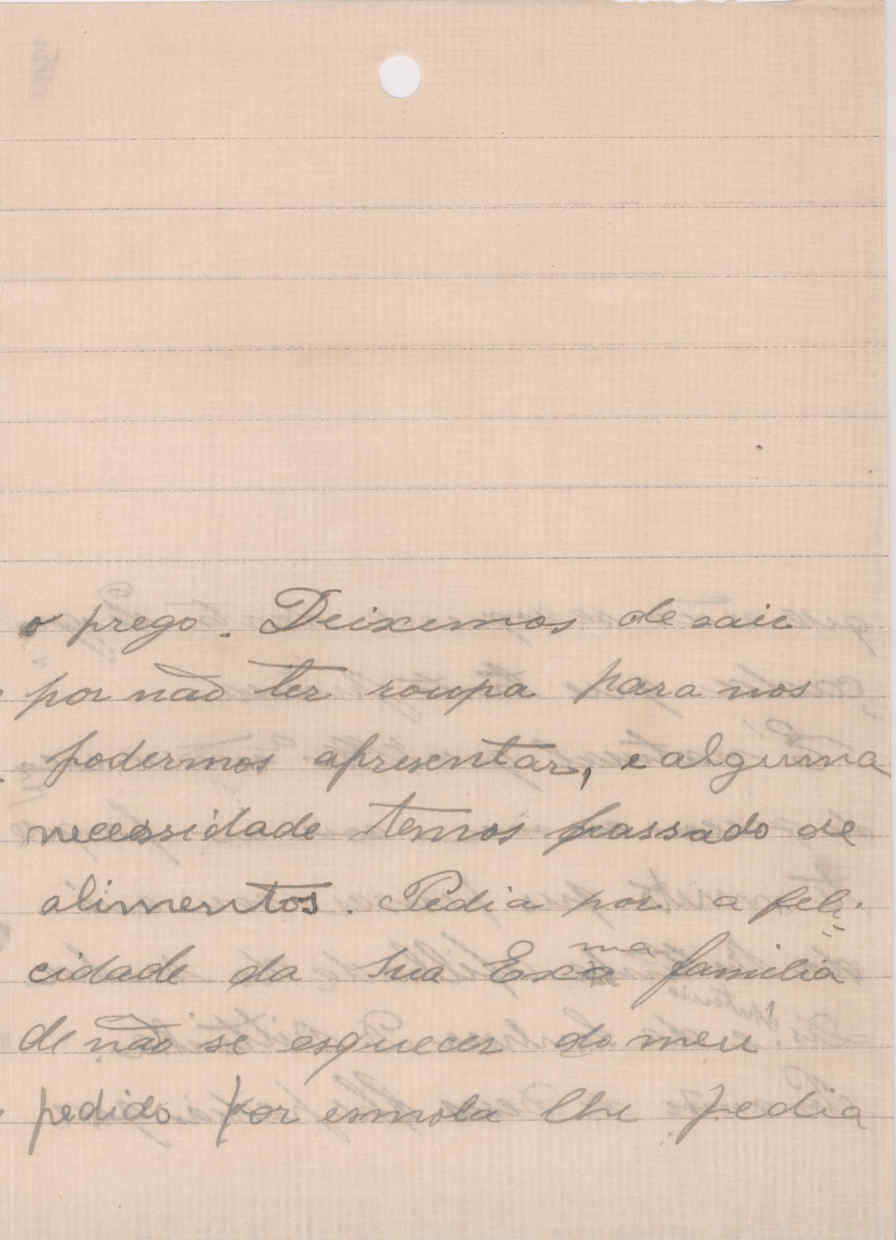 o prego. Deixemos de sair
por não ter roupa para nos
podermos apresentar, e alguma
necessidade temos passado de
alimentos. Pedia por a feli-
cidade da Sua Exma familia
de não se esquecer do meu
pedido por esmola lhe pedia